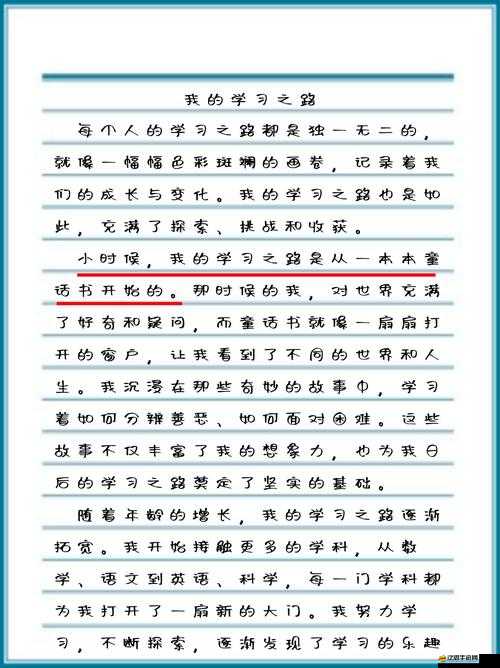 我的学习之路
每个人的学习之路都是独一无二的，
就像一幅幅色彩斑斓的画卷，记录着我
们的成长与变化。我的学习之路也是如
此，充满了探索、挑战和收获。
小时候，我的学习之路是从一本本童
话书开始的。那时候的我，对世界充满
了好奇和疑问，而童话书就像一扇扇打
开的窗户，让我看到了不同的世界和人
生。我沉浸在那些奇妙的故事中，学习
着如何分辨善恶、如何面对困难。这些
故事不仅丰富了我的想象力，也为我日
后的学习之路奠定了坚实的基础。
随着年龄的增长，我的学习之路逐渐
拓宽。我开始接触更多的学科，从数
学、语文到英语、科学，每一门学科都
为我打开了一扇新的大门。我努力学
习，不断探索，逐渐发现了学习的乐趣